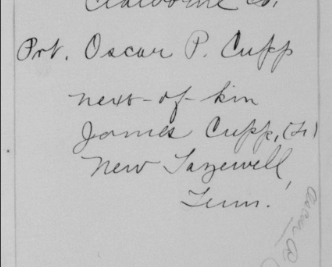 Claiborne Co.
Pvt. Oscar P. Cupp
next-of-kin
James Cupp, (F)
New Tazewell,
Tenn.